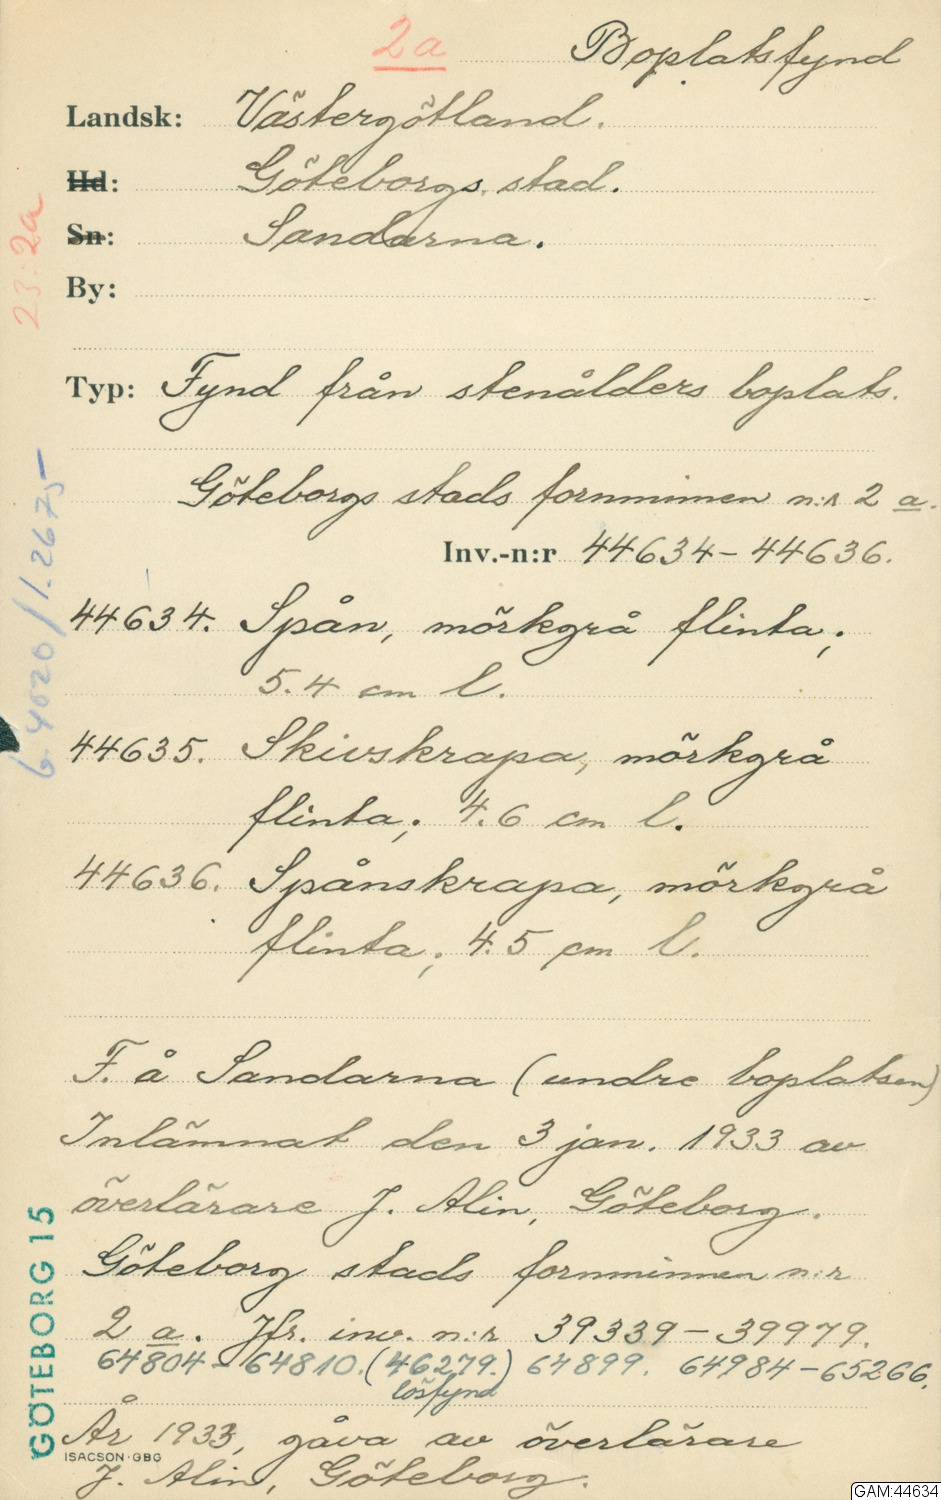 2a
Boplatsfynd
Landsk: Västergötland.
Hd: Göteborgs stad.
Sn: Sandarna.
By:
23:2a
Typ: Fynd från stenålders boplats.
Göteborgs stads fornminnen n:r 2 a.
Inv.-n:r 44634-44636.
44634. Spån, mörkgrå flinta;
5.4 cm l.
44635. Skivskrapa, mörkgrå
flinta; 4.6 cm l.
44636. Spånskrapa, mörkgrå
flinta; 4.5 cm l.
F. å Sandarna (undre boplatsen)
Inlämnat den 3 jan. 1933 av
överlärare J. Alin, Göteborg.
Göteborg stads fornminnen n:r
2 a. Jfr. inv. n:r 39339-39979.
64804-64810. (46279.) 64899. 64984-65266.
lösfynd
År 1933, gåva av överlärare
ISACSON·GBG
J. Alin, Göteborg.
GÖTEBORG 15
GAM:44634